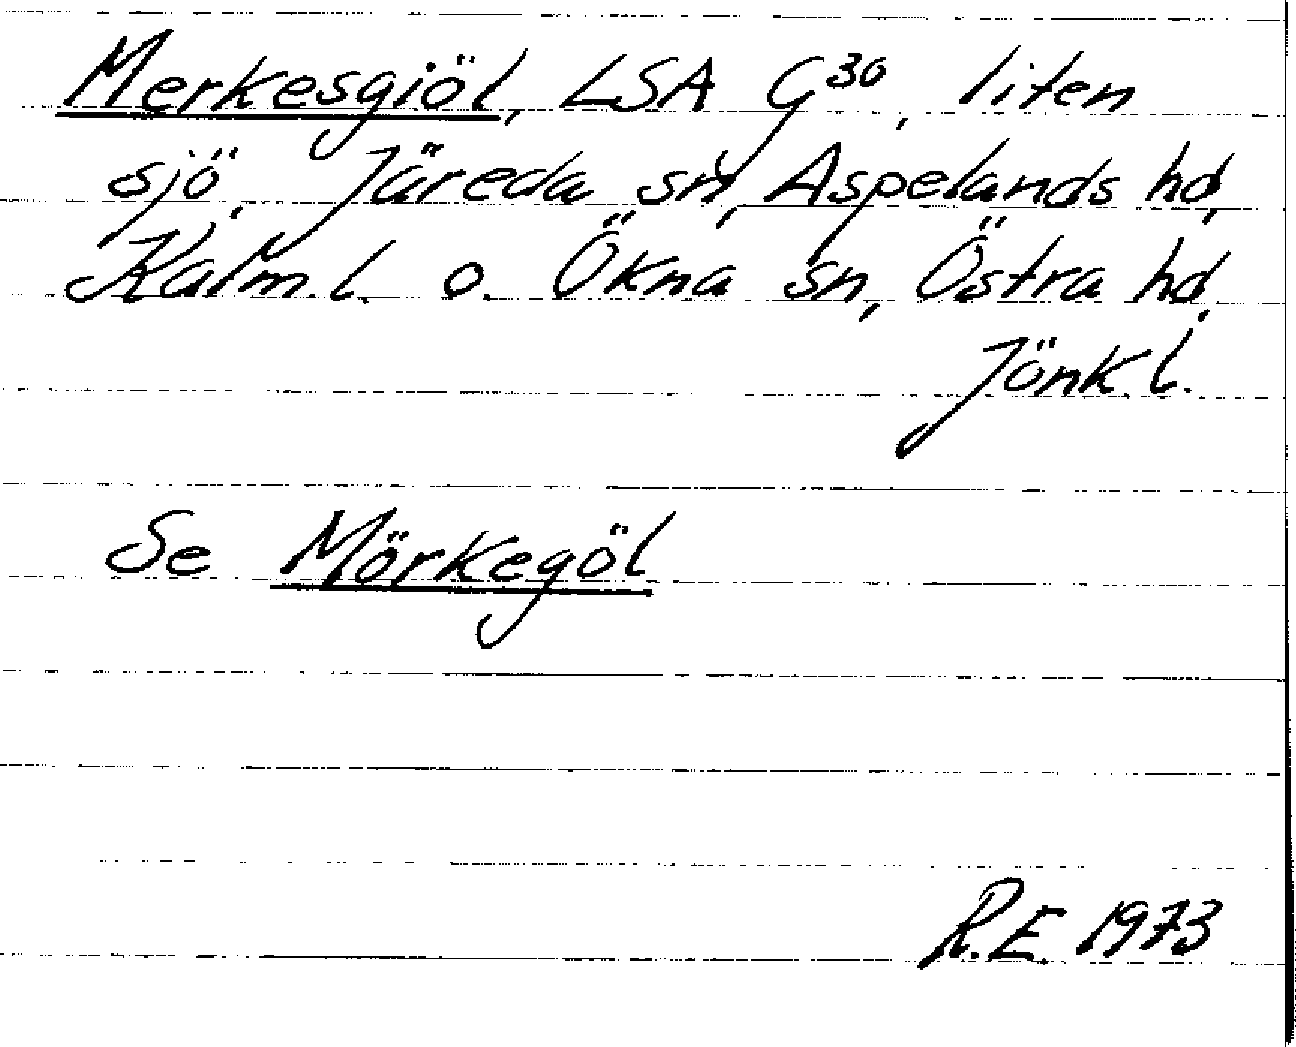 Merkesgiöl, LSA G³⁰, liten
sjö, Järeda sn, Aspelands hd,
Kalm.l. o. Ökna sn, Östra hd,
Jönk.l.
Se Mörkegöl
R.E. 1973